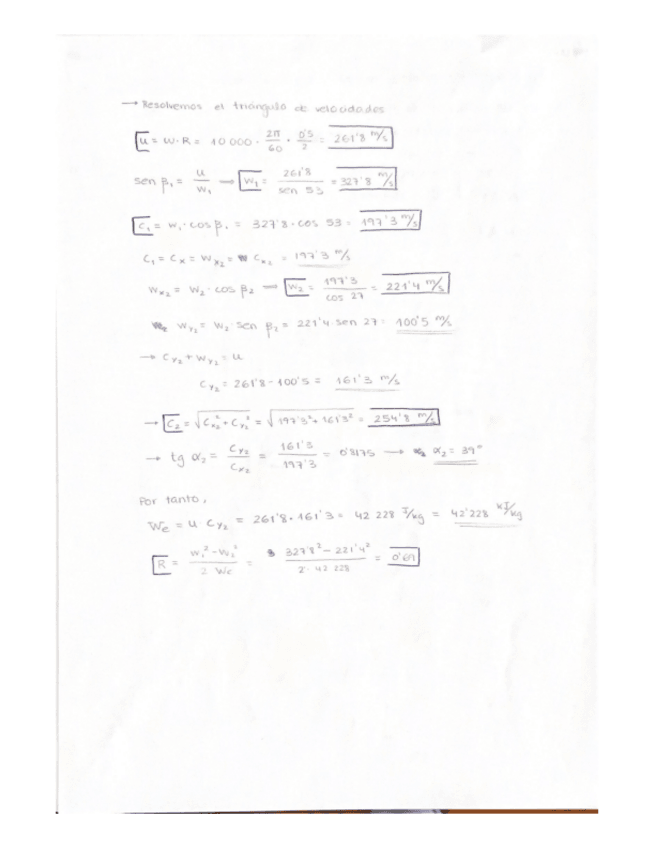 → Resolvemos el triángulo de velocidades
u = W·R = 10 000 · 2π/60 · 0'5/2 = 261'8 m/s
sen β₁ = u/W₁ → W₁ = 261'8/sen 53 = 327'8 m/s
C₁ = W₁·cos β₁ = 327'8·cos 53 = 197'3 m/s
C₁ = Cx = Wx₂ = Cx₂ = 197'3 m/s
Wx₂ = W₂·cos β₂ → W₂ = 197'3/cos 27 = 221'4 m/s
Wy₂ = W₂·sen β₂ = 221'4·sen 27 = 100'5 m/s
→ Cy₂ + Wy₂ = u
Cy₂ = 261'8 - 100'5 = 161'3 m/s
→ C₂ = √(Cx₂² + Cy₂²) = √(197'3² + 161'3²) = 254'8 m/s
→ tg α₂ = Cy₂/Cx₂ = 161'3/197'3 = 0'8175 → α₂ = 39°
Por tanto,
We = u Cy₂ = 261'8·161'3 = 42 228 J/kg = 42'228 kJ/kg
R = (W₁² - W₂²)/(2 We) = (327'8² - 221'4²)/(2·42 228) = 0'69